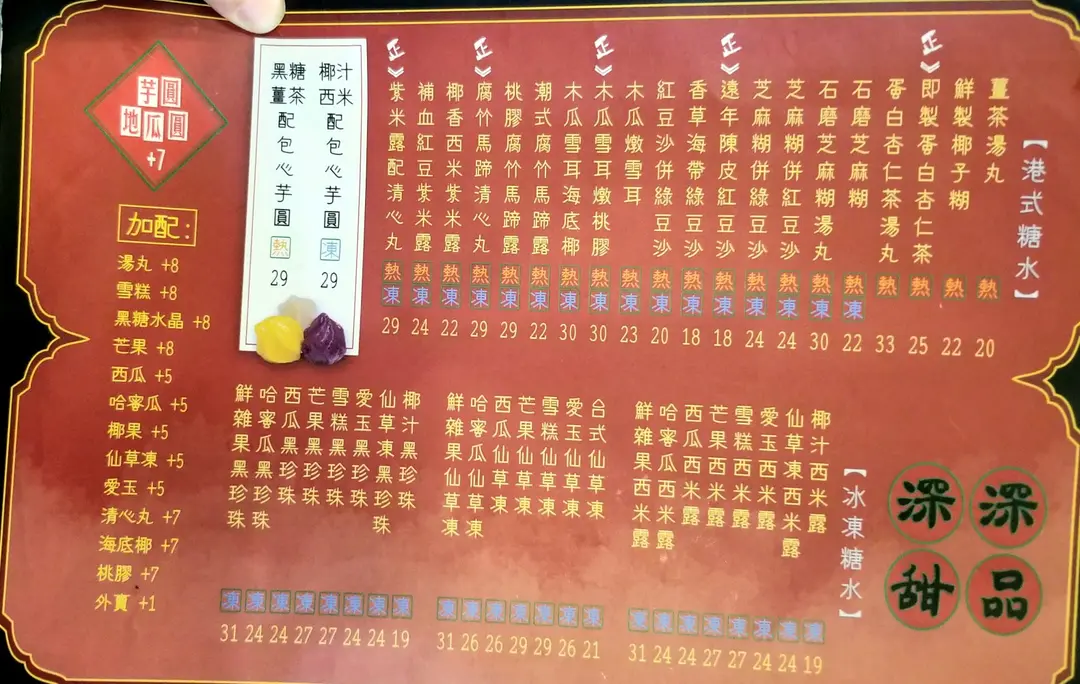 【港式糖水】
薑茶湯丸 熱 20
鮮製椰子糊 熱 22
正》即製蛋白杏仁茶 熱 25
蛋白杏仁茶湯丸 熱 33
石磨芝麻糊 熱 凍 22
石磨芝麻糊湯丸 熱 凍 30
芝麻糊併紅豆沙 熱 凍 24
芝麻糊併綠豆沙 熱 凍 24
正》遠年陳皮紅豆沙 熱 凍 18
香草海帶綠豆沙 熱 凍 18
紅豆沙併綠豆沙 熱 凍 20
木瓜燉雪耳 熱 23
正》木瓜雪耳燉桃膠 熱 凍 30
木瓜雪耳海底椰 熱 凍 30
潮式腐竹馬蹄露 熱 凍 22
桃膠腐竹馬蹄露 熱 凍 29
正》腐竹馬蹄清心丸 熱 凍 29
椰香西米紫米露 熱 凍 22
補血紅豆紫米露 熱 凍 24
正》紫米露配清心丸 熱 凍 29
椰汁西米配包心芋圓 凍 29
黑糖薑茶配包心芋圓 熱 29
芋圓
地瓜圓
+7
加配:
湯丸 +8
雪糕 +8
黑糖水晶 +8
芒果 +8
西瓜 +5
哈蜜瓜 +5
椰果 +5
仙草凍 +5
愛玉 +5
清心丸 +7
海底椰 +7
桃膠 +7
外賣 +1
深深
甜品
【冰凍糖水】
椰汁西米露 凍 19
仙草凍西米露 凍 24
愛玉西米露 凍 24
雪糕西米露 凍 27
芒果西米露 凍 27
西瓜西米露 凍 24
哈蜜瓜西米露 凍 24
鮮雜果西米露 凍 31
台式仙草凍 凍 21
愛玉仙草凍 凍 26
雪糕仙草凍 凍 29
芒果仙草凍 凍 29
西瓜仙草凍 凍 26
哈蜜瓜仙草凍 凍 26
鮮雜果仙草凍 凍 31
椰汁黑珍珠 凍 19
仙草凍黑珍珠 凍 24
愛玉黑珍珠 凍 24
雪糕黑珍珠 凍 27
芒果黑珍珠 凍 27
西瓜黑珍珠 凍 24
哈蜜瓜黑珍珠 凍 24
鮮雜果黑珍珠 凍 31